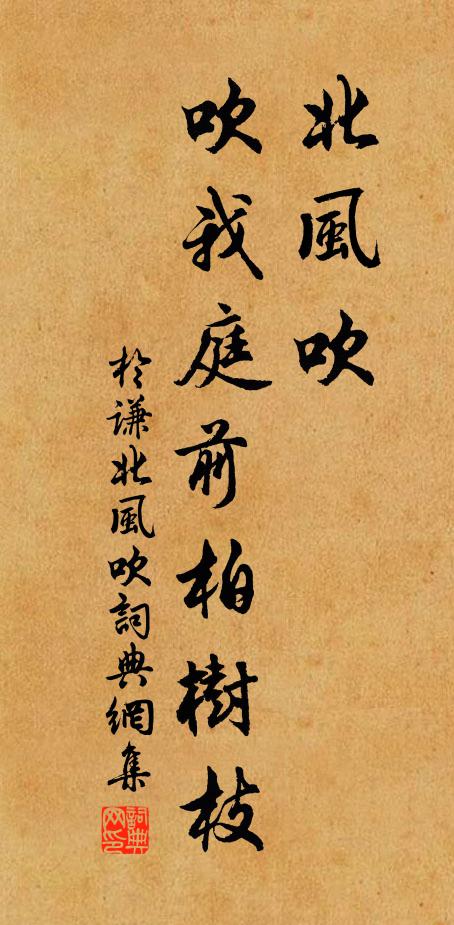 北風吹
吹我庭前柏樹枝
於謙北風吹詞典網集
詞典
网印